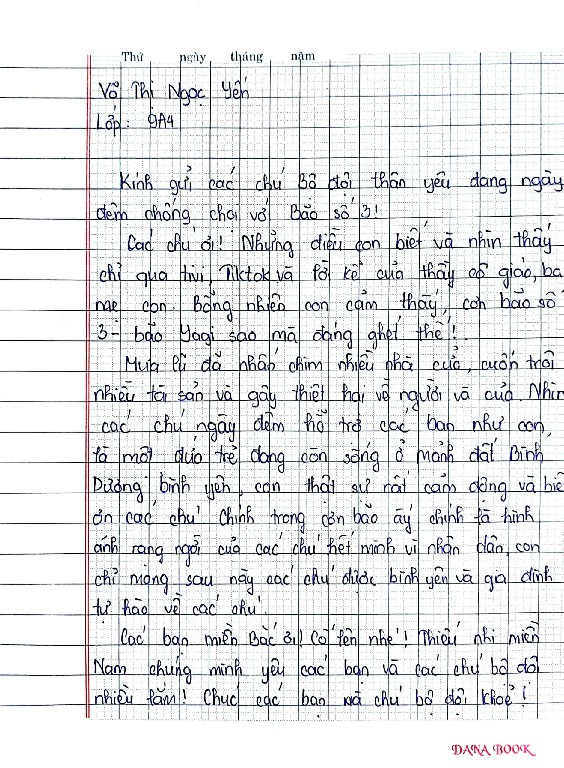 Thứ ngày tháng năm
Võ Thị Ngọc Yến
Lớp: 9A4
Kính gửi các chú Bộ đội thân yêu đang ngày
đêm chống chọi với Bão số 3!
Các chú ơi! Những điều con biết và nhìn thấy
chỉ qua tivi, Tiktok và lời kể của thầy cô giáo, ba
mẹ con. Bỗng nhiên con cảm thấy, cơn bão số
3 - bão Yagi sao mà đáng ghét thế!
Mưa lũ đã nhấn chìm nhiều nhà cửa, cuốn trôi
nhiều tài sản và gây thiệt hại về người và của. Nhìn
các chú ngày đêm hỗ trợ các bạn như con,
là một đứa trẻ đang còn sống ở mảnh đất Bình
Dương bình yên, con thật sự rất cảm động và biế
ơn các chú. Chính trong cơn bão ấy chính là hình
ảnh rạng ngời của các chú hết mình vì nhân dân, con
chỉ mong sau này các chú được bình yên và gia đình
tự hào về các chú.
Các bạn miền Bắc ơi! Cố lên nhé! Thiếu nhi miền
Nam chúng mình yêu các bạn và các chú bộ đội
nhiều lắm! Chúc các bạn và chú bộ đội khoẻ!
DANA BOOK